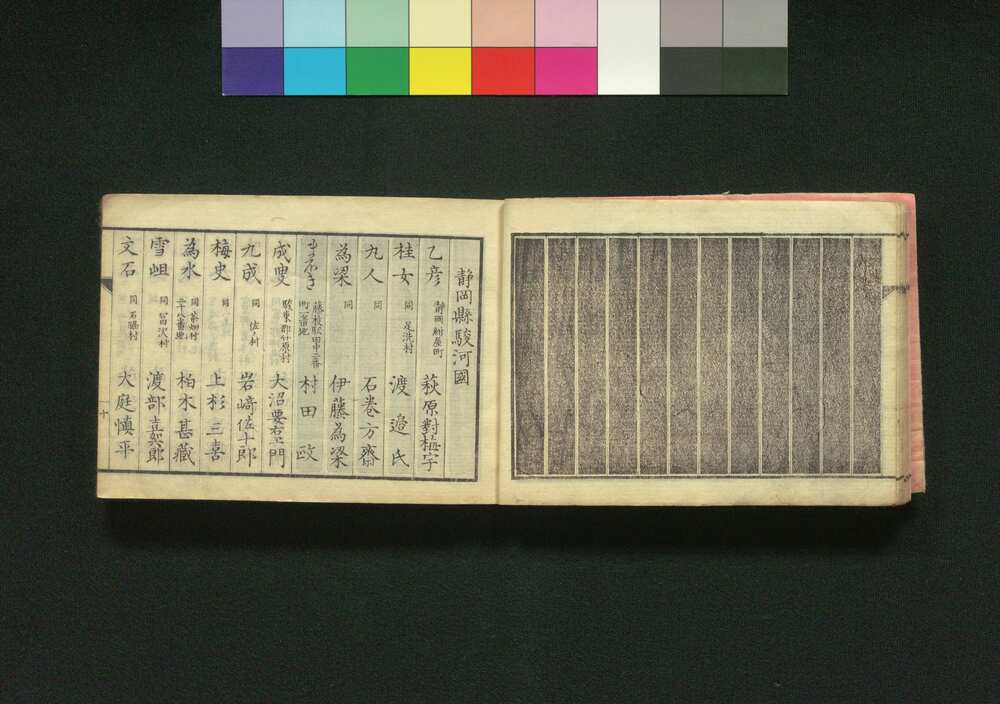 静岡縣駿河國
乙彦 静岡紺屋町 萩原對梅宇
桂女 同 足洗村 渡邉氏
九人 同 石巻方齋
為梁 同 伊藤為梁
藤枝駅田中三番町 番地 村田政
成叟 駿東郡竹原村 大沼要右エ門
九成 同 佐ノ村 岩﨑佐十郎
梅史 同 上杉三喜
為水 同 茶畑村 二十八番地 柏木甚藏
雪岨 同 冨沢村 渡部喜郎
文石 同 石脇村 大庭慎平
十